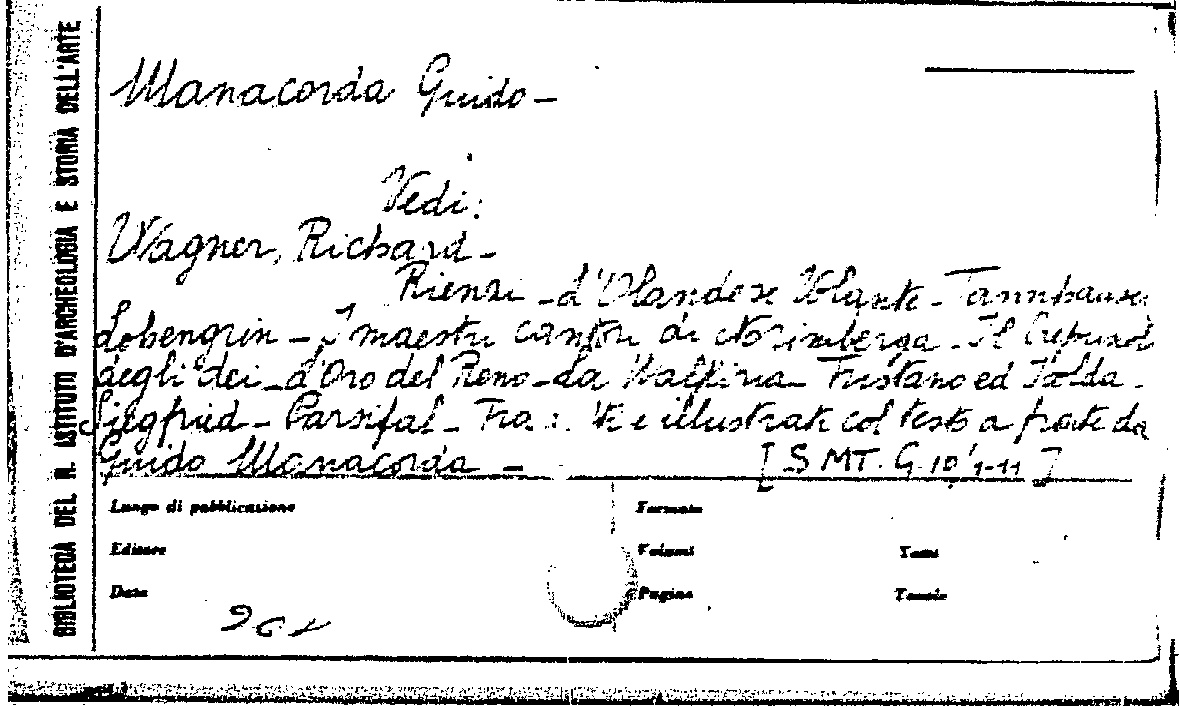 BIBLIOTECA DEL R. ISTITUTO D'ARCHEOLOGIA E STORIA DELL'ARTE
Manacorda Guido -
Vedi:
Wagner, Richard -
Rienzi - L'Olandese Volante - Tannhauser
Lohengrin - I maestri cantori di Norimberga - Il Crepuscol
degli dei - L'Oro del Reno - La Walkiria - Tristano ed Isolda -
Siegfried - Parsifal - e illustrate col testo a fronte da
Guido Manacorda - [S MT. G. 10/1-11]
Luogo di pubblicazione
Formato
Editore
Volumi
Tomi
Data
Pagine
Tavole